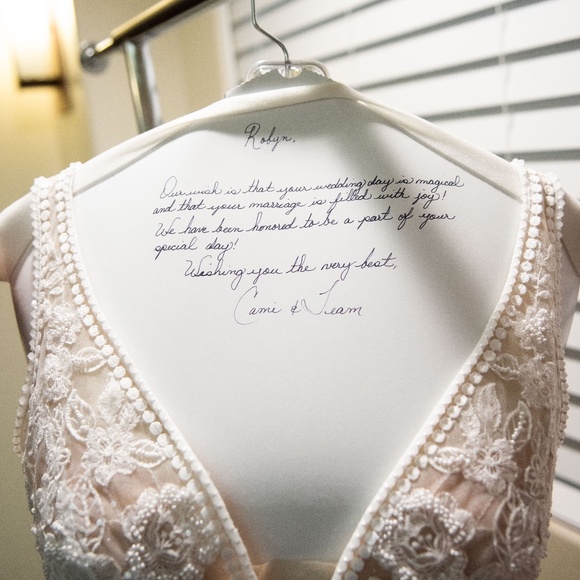 Robyn,
Our wish is that your wedding day is magical
and that your marriage is filled with joy!
We have been honored to be a part of your
special day!
Wishing you the very best,
Cami & Team